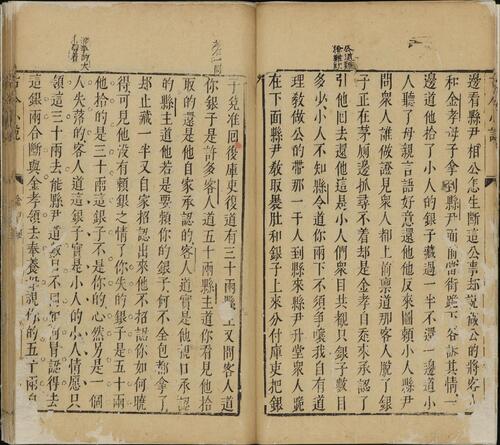 邊看縣尹相公怎生斷這公事却說藏公的將客人
和金孝母子拿到縣尹面前當街跪下各訴其情一
邊道他拾了小人的銀子藏過一半不還一邊道小
人聽了母親言語好意還他他反來圖賴小人縣尹
問衆人誰做證見衆人都上前禀道那客人脫了銀
子正在茅厠邊抓尋不着却是金孝自走來承認了
引他回去還他這是小人們衆目共覩只銀子數目
多少小人不知縣令道你兩下不須爭嚷我自有道
理教做公的帶那一干人到縣來縣尹升堂衆人跪
在下面縣尹教取裹肚和銀子上來分付庫吏把銀
子兌准回後庫吏後道有三十兩縣主又問客人道
你銀子是許多客人道五十兩縣主道你看見他拾
取的還是他自家承認的客人道實是他親口承認
的縣主道他若是要賴你的銀子何不全包都拿了
却止藏一半又自家招認出來他不招認你如何曉
得可見他沒有賴銀之情了你失的銀子是五十兩
他拾的是三十兩這銀子不是你的必然另是一個
人失落的客人道這銀子實是小人的小人情愿只
領這三十兩去罷縣尹道數目不同如何冒認得去
這銀兩合斷與金孝領去奉養母親你的五十兩自